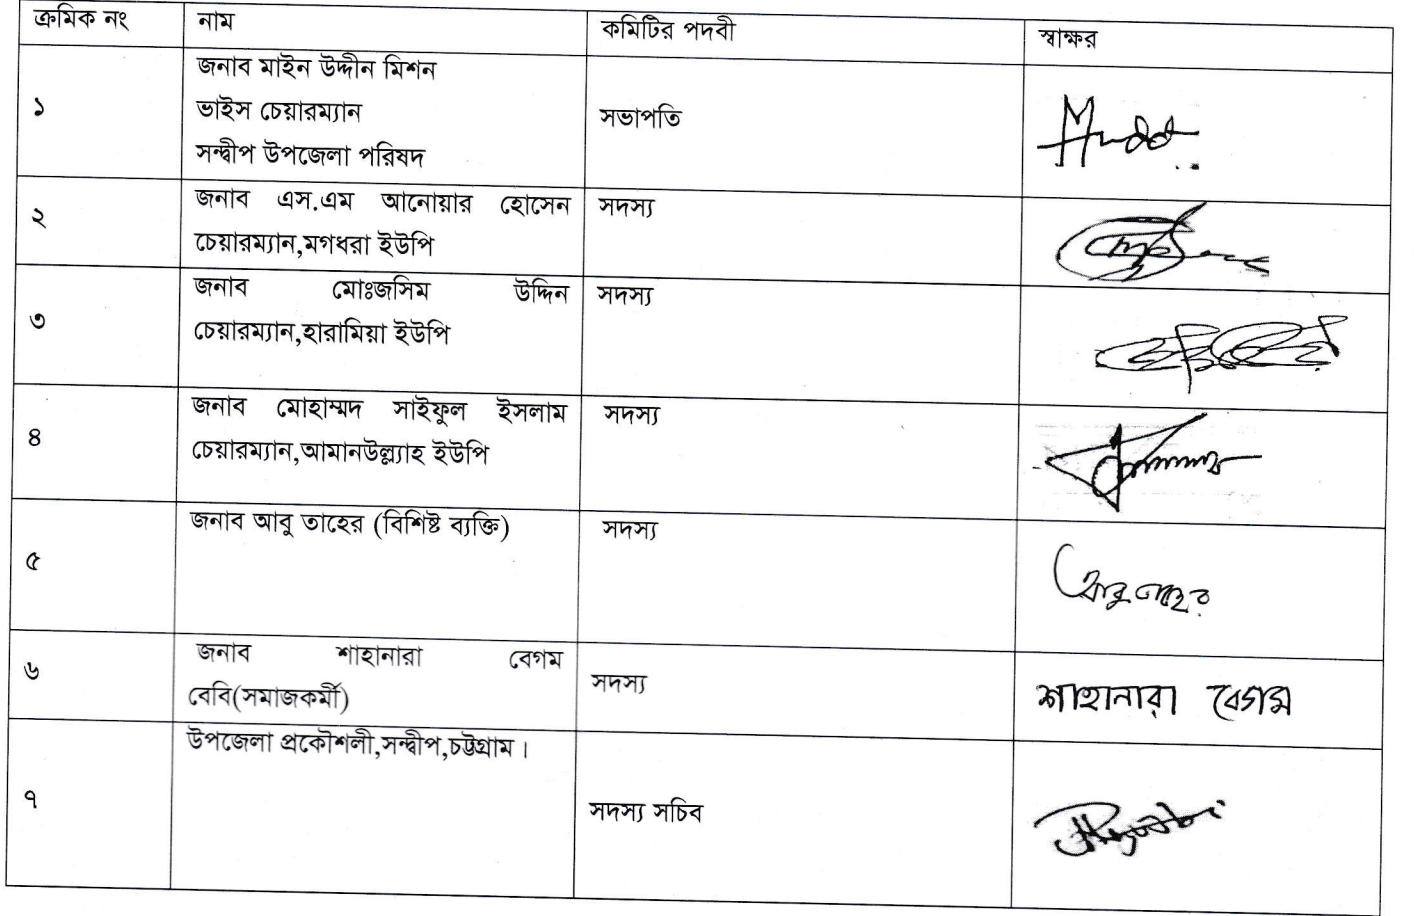 ক্রমিক নং নাম কমিটির পদবী স্বাক্ষর
জনাব মাইন উদ্দীন মিশন
১ ভাইস চেয়ারম্যান সভাপতি
সন্দ্বীপ উপজেলা পরিষদ
জনাব এস.এম আনোয়ার হোসেন সদস্য
২ চেয়ারম্যান,মগধরা ইউপি
জনাব মোঃজসিম উদ্দিন সদস্য
৩ চেয়ারম্যান,হারামিয়া ইউপি
জনাব মোহাম্মদ সাইফুল ইসলাম সদস্য
৪ চেয়ারম্যান,আমানউল্ল্যাহ ইউপি
জনাব আবু তাহের (বিশিষ্ট ব্যক্তি) সদস্য
৫ আবু তাহের
জনাব শাহানারা বেগম
৬ বেবি(সমাজকর্মী) সদস্য শাহানারা বেগম
উপজেলা প্রকৌশলী,সন্দ্বীপ,চট্টগ্রাম।
৭ সদস্য সচিব